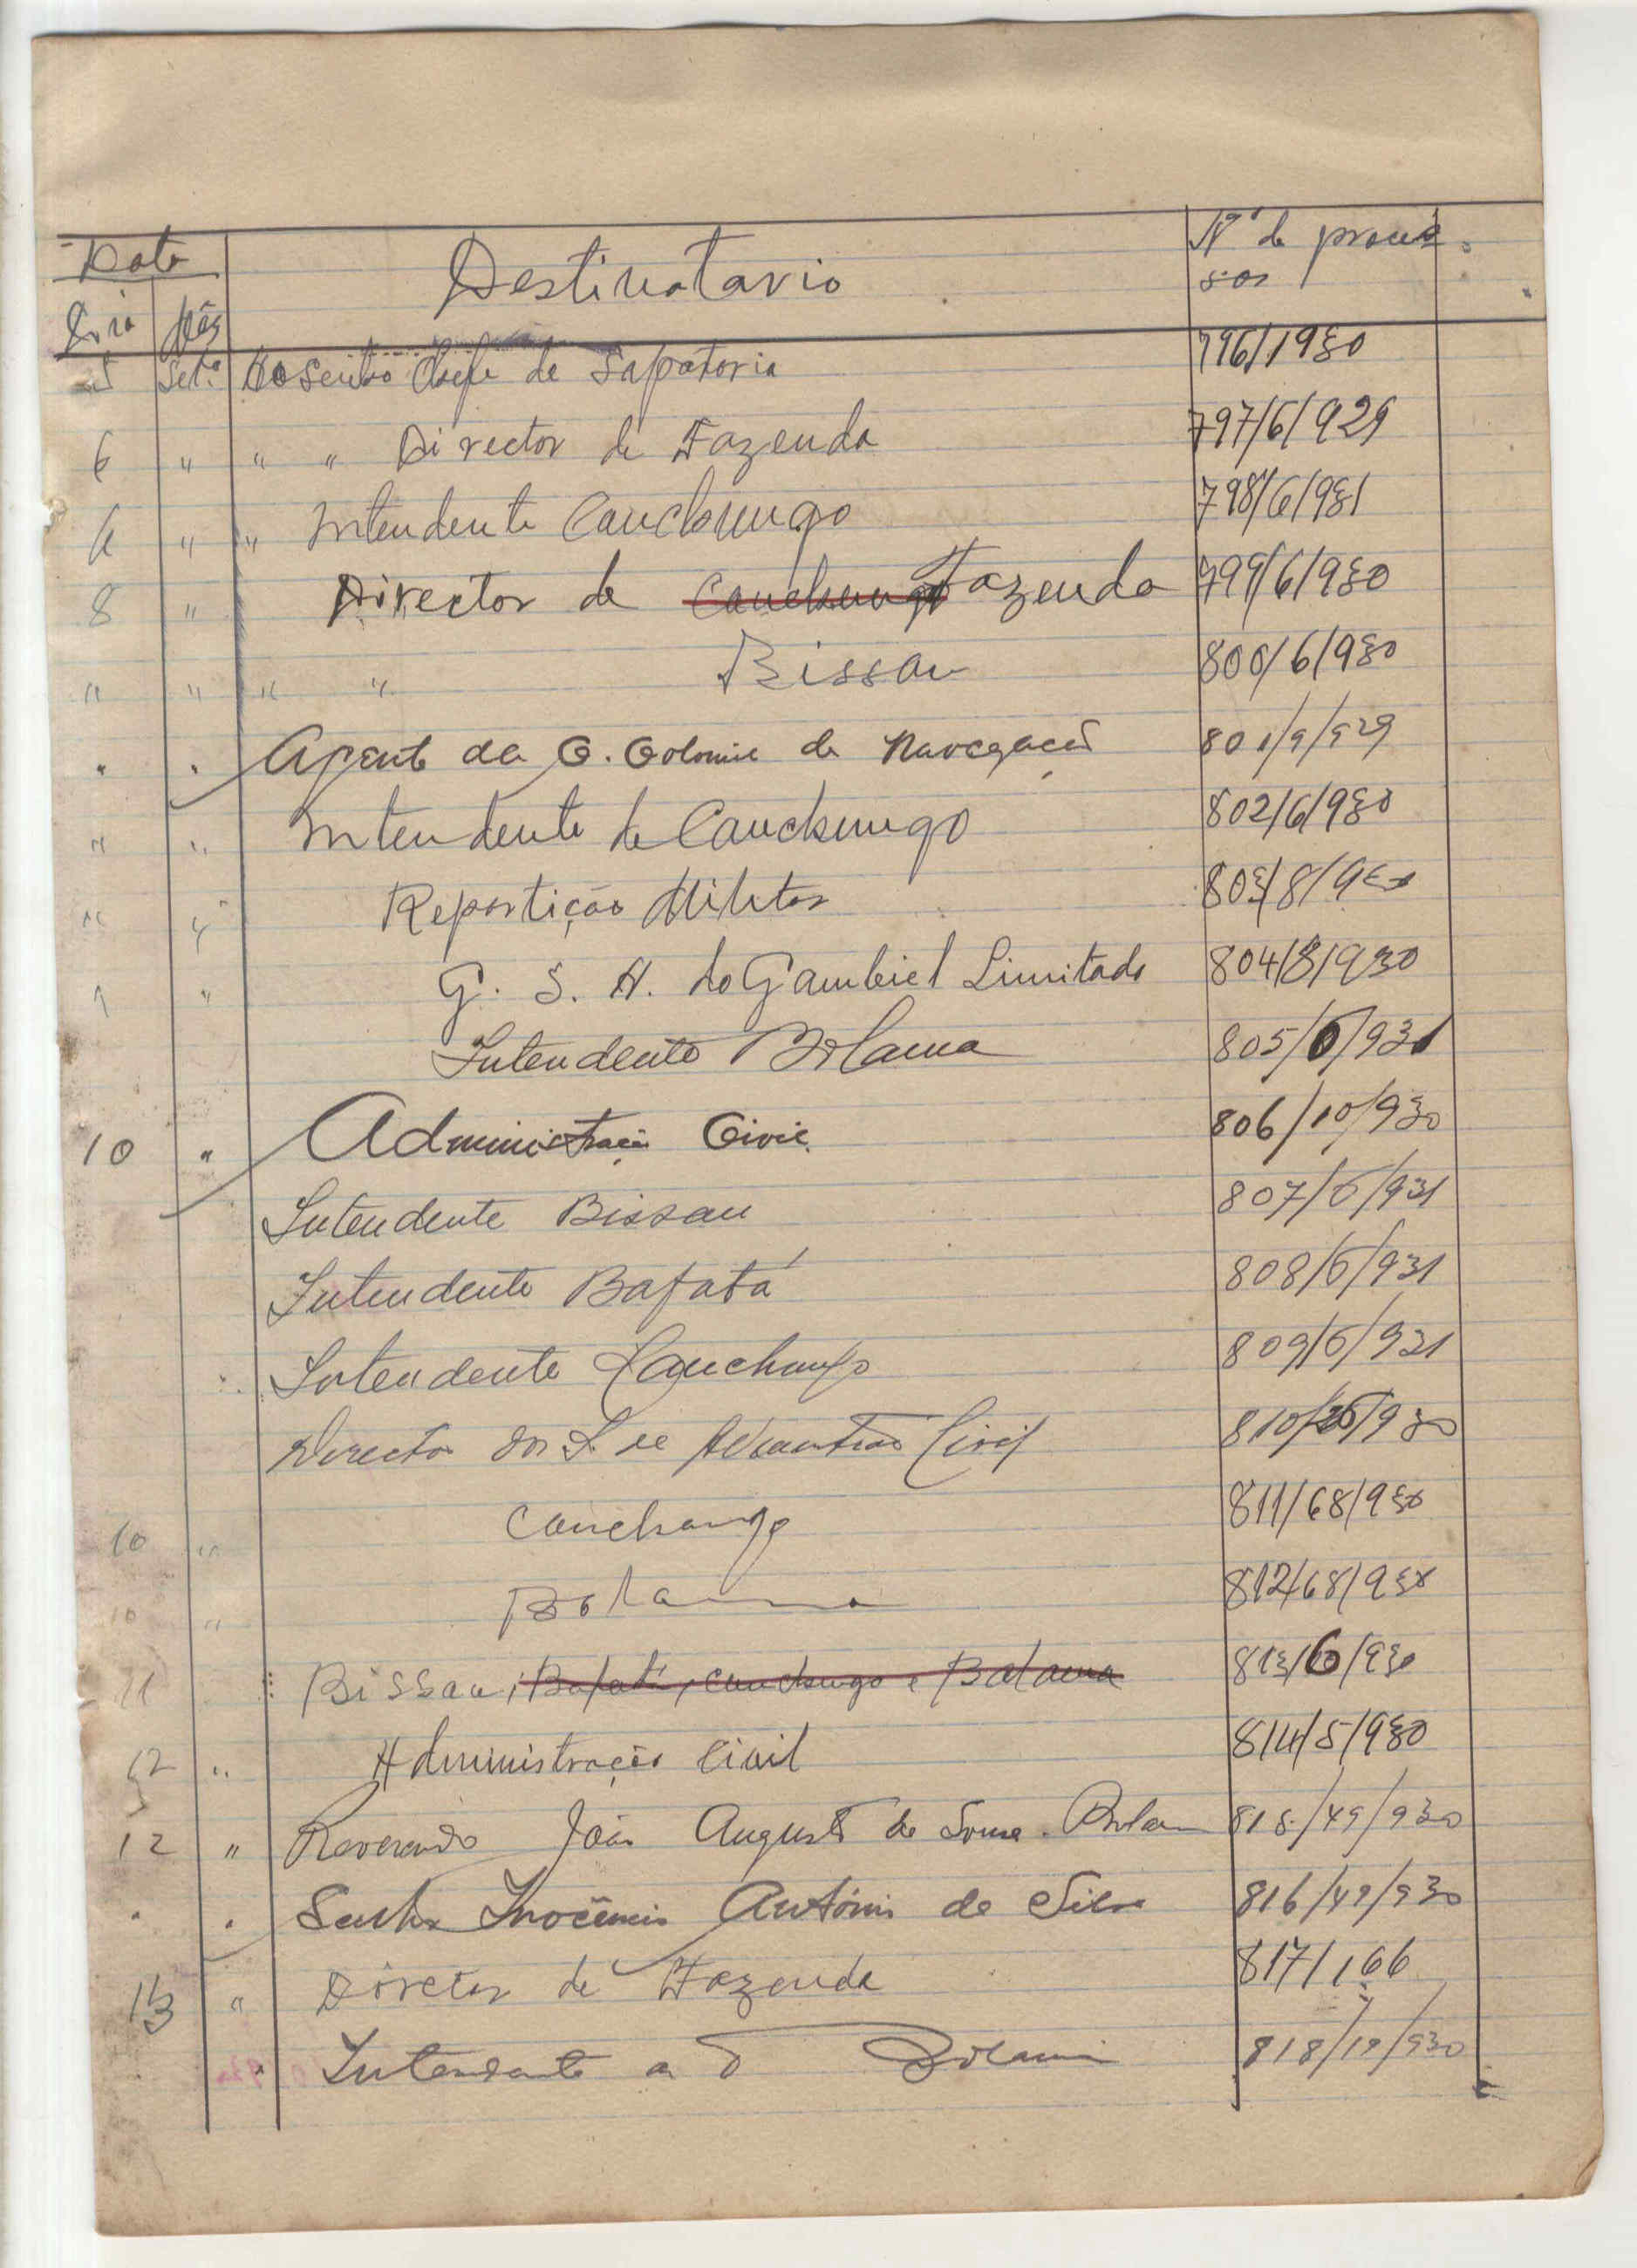 Data
Destinatario
Nº de proces-
sos
Dia Mês
5 Setº Ao Senhor Chefe de Sapatoria 796/1930
6 " " " Director de Fazenda 797/6/929
6 " " Intendente Canchungo 798/6/931
8 " Director de Canchungo Fazenda 799/6/930
" " " " Bissau 800/6/930
" " Agente da C. Colonial de Navegação 801/9/929
" " Intendente de Canchungo 802/6/930
" " Repartição Militar 803/8/930
9 " G. S. H. do Gambiel Limitado 804/8/930
Intendente Bolama 805/6/931
10 " Administração Civil 806/10/930
Intendente Bissau 807/6/931
Intendente Bafatá 808/6/931
Intendente Canchungo 809/6/931
Director dos S. de Civil 810/26/930
10 " Canchungo 811/68/930
10 " Bolama 812/68/930
11 Bissau, Bafatá, Canchungo e Bolama 813/6/930
12 " Administração Civil 814/5/930
12 " Reverendo João Augusto de Sousa. Bolama 815/49/930
" " Senhor Inocêncio António da Silva 816/49/930
13 " Director de Fazenda 817/166
Intendente Bolama 818/19/930